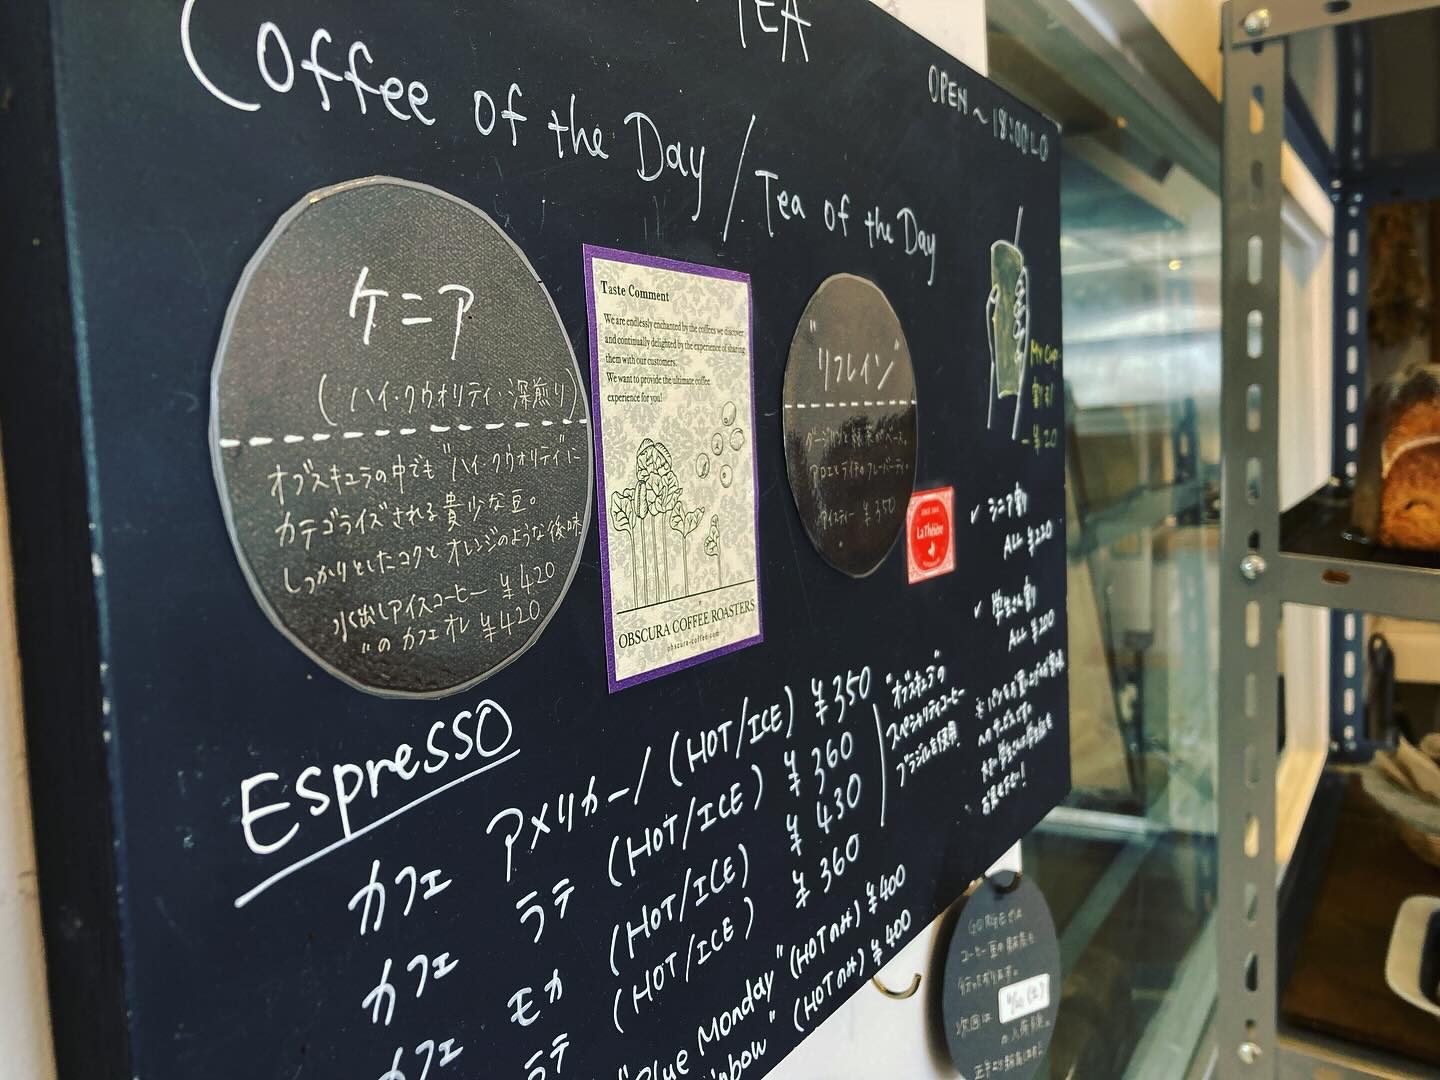 TEA
Coffee of the Day / Tea of the Day
OPEN ~ 18:00 L.O
ケニア
(ハイ・クウオリティ・深煎り)
オブスキュラの中でも "ハイ・クウオリティ"に
カテゴライズされる貴少な豆。
しっかりとしたコクと オレンジのような後味
水出しアイスコーヒー ¥420
〃 の カフェ オレ ¥420
Taste Comment
We are endlessly enchanted by the coffees we discover,
and continually delighted by the experience of sharing
them with our customers.
We want to provide the ultimate coffee
experience for you!
OBSCURA COFFEE ROASTERS
obscura-coffee.com
"リフレイン"
アイスティー ¥350
La Théière
My Cup
割引
-¥20
✓ シニア割
ALL ¥220
✓ 学生さん割
ALL ¥200
Espresso
カフェ アメリカーノ (HOT/ICE) ¥350
カフェ ラテ (HOT/ICE) ¥360
カフェ モカ (HOT/ICE) ¥430
ラテ (HOT/ICE) ¥360
"オブスキュラ"の
スペシャリティコーヒー
ブラジルを使用
"Blue Monday" (HOTのみ) ¥400
" (HOTのみ) ¥400